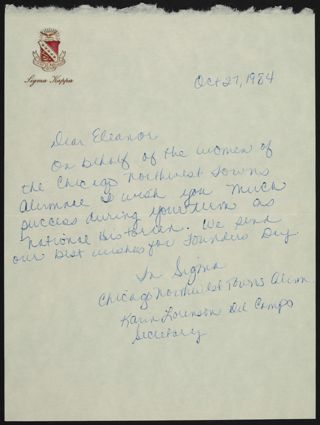 Sigma Kappa
Oct 27, 1984
Dear Eleanor
On behalf of the women of
the Chicago Northwest Towns
Alumnae I wish you much
success during your term as
National Historian. We send
our best wishes for Founders Day.
In Sigma
Chicago Northwest Towns Alum
Karin Lorenson Del Campo
Secretary